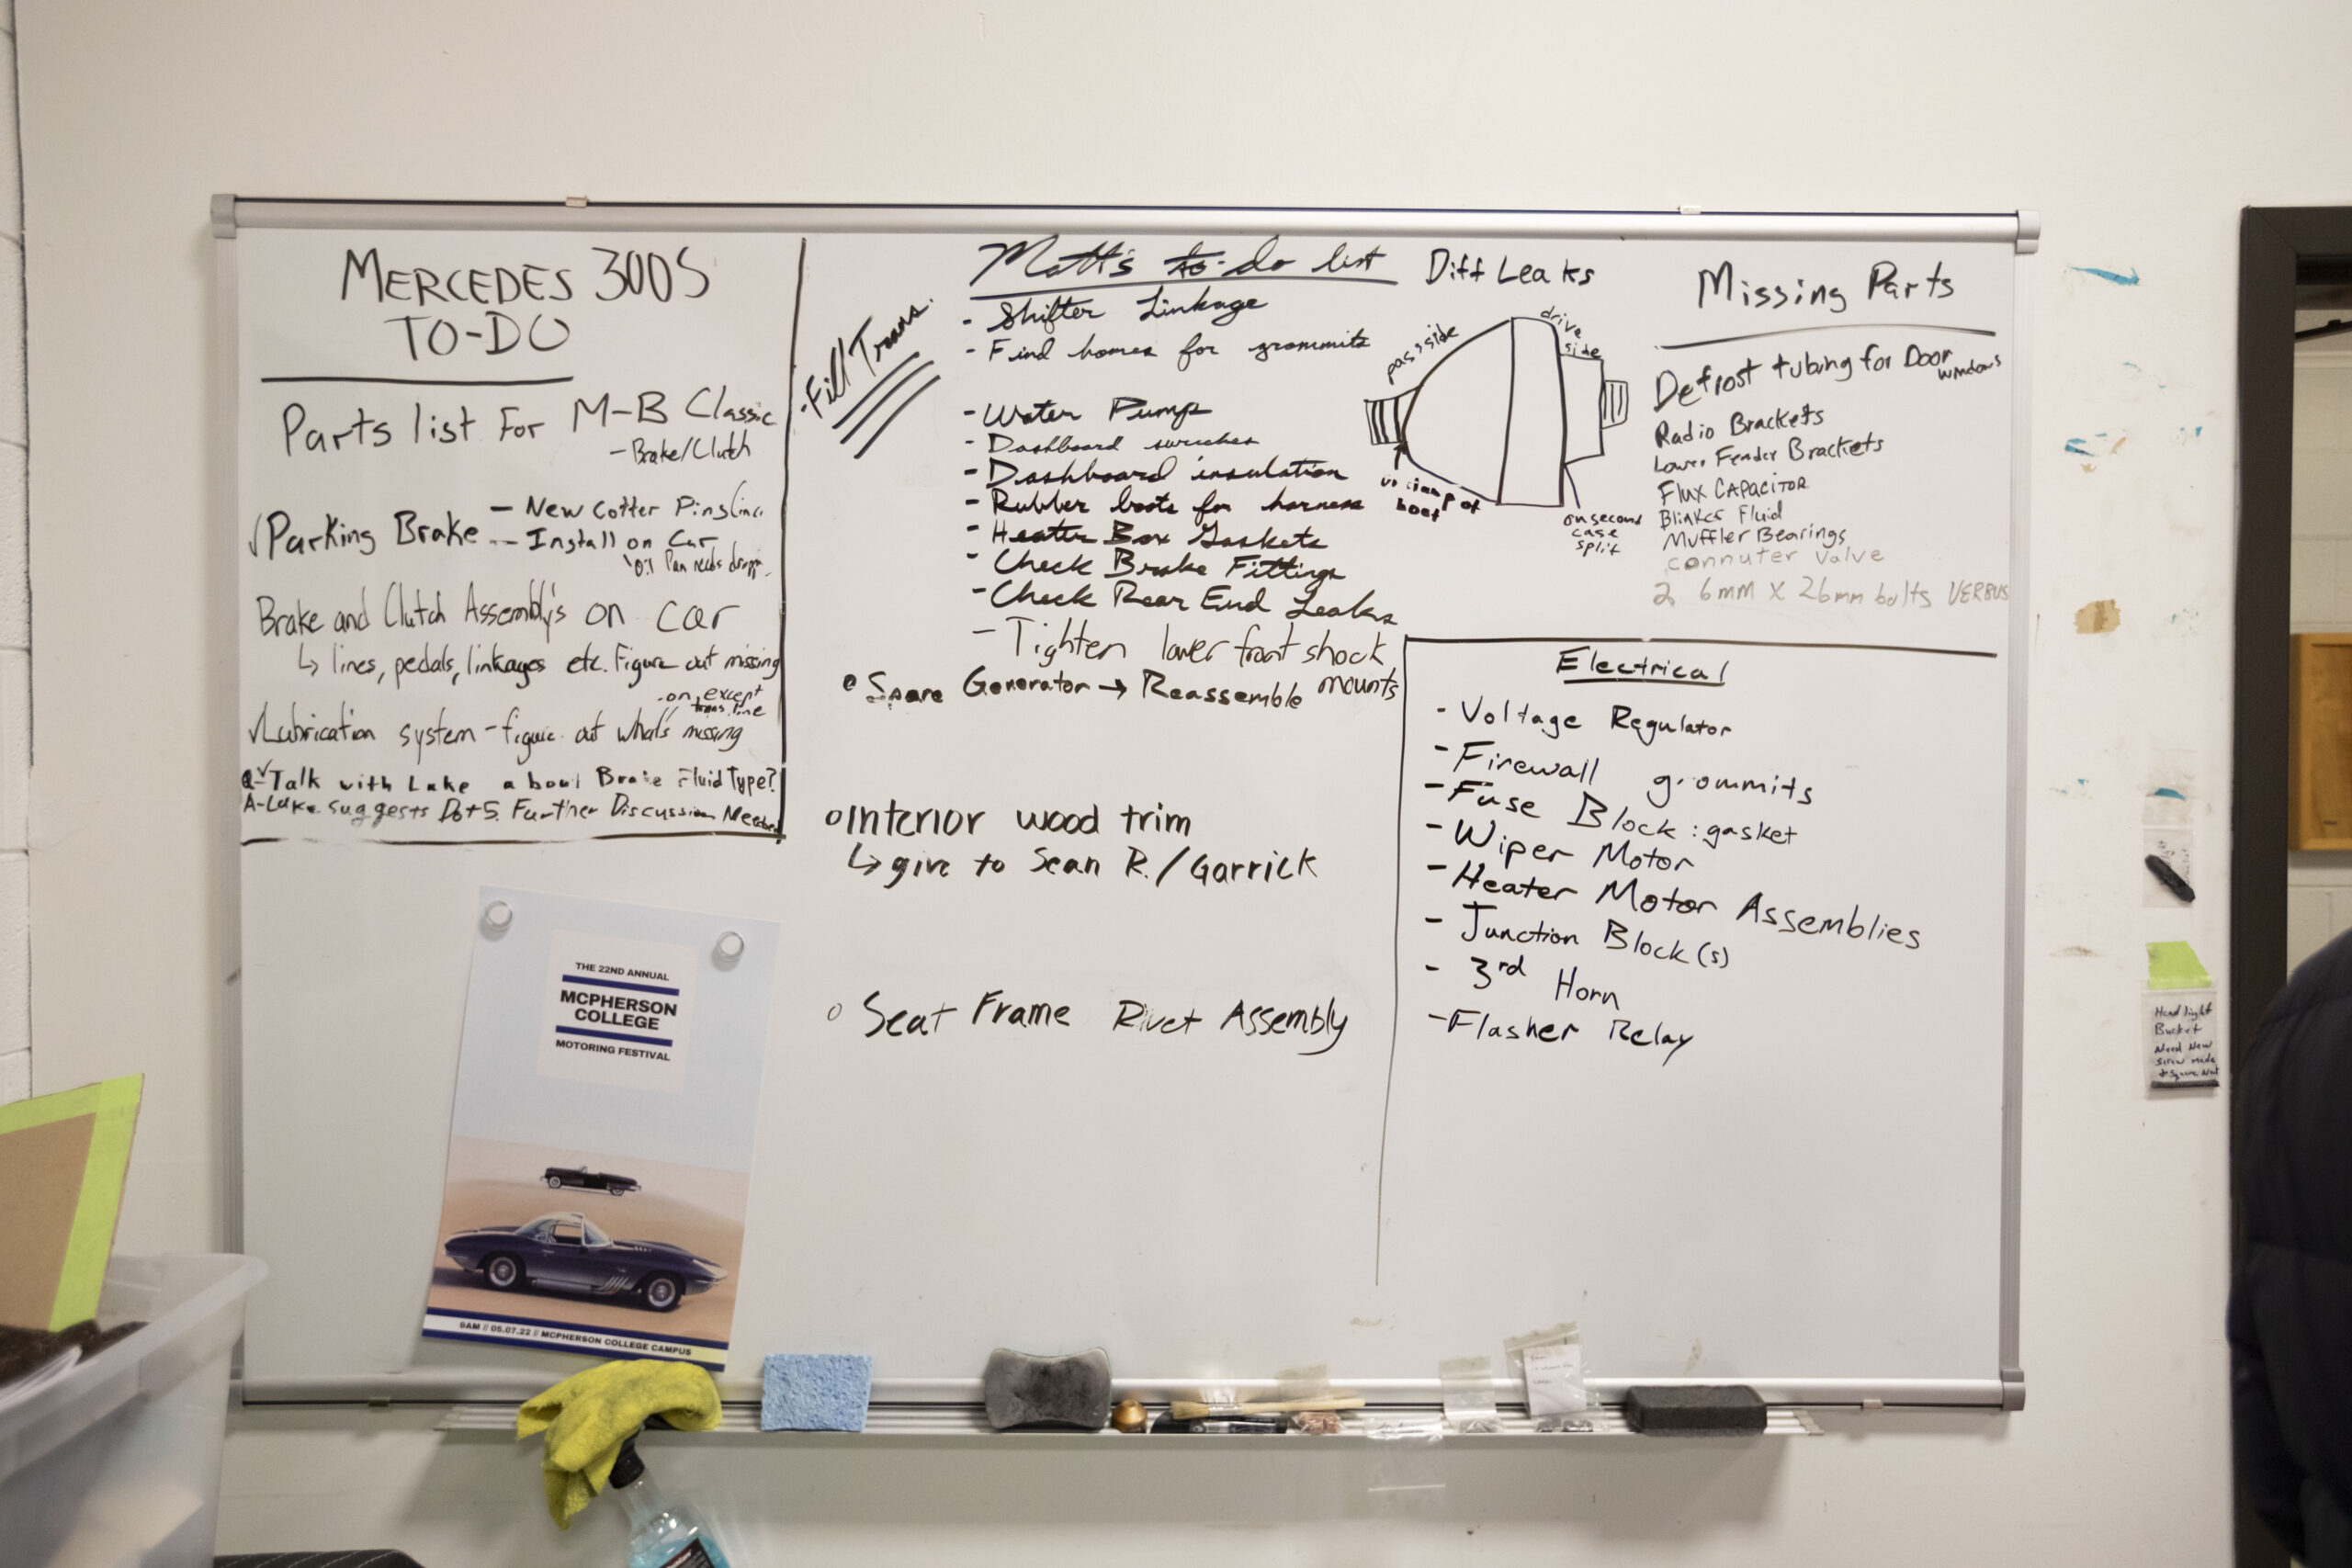 MERCEDES 300S
TO-DO
Parts list For M-B Classic
- Brake/Clutch
√Parking Brake
- New Cotter Pins
- Install on Car
Brake and Clutch Assembly's on car
↳ lines, pedals, linkages etc. Figure out missing
on except
trans line
√Lubrication system - figure out what's missing
Q-√Talk with Luke about Brake Fluid Type?
A-Luke suggests Dot 5. Further Discussion Needed
-Fill Trans.
Matt's to-do list
- Shifter Linkage
- Find homes for grommits
- Water Pump
- Dashboard switches
- Dashboard insulation
- Rubber boots for harness
- Heater Box Gaskets
- Check Brake Fittings
- Check Rear End Leaks
- Tighten lower front shock
mounts
• Spare Generator → Reassemble
o Interior wood trim
↳ give to Sean R. / Garrick
o Seat Frame Rivet Assembly
Diff Leaks
pass side
drive
side
boot
on second
case
split
Missing Parts
Defrost tubing for Door
windows
Radio Brackets
Lower Fender Brackets
Flux CAPACITOR
Blinker Fluid
Muffler Bearings
connuter valve
2 6mm X 26mm bolts VERBUS
Electrical
- Voltage Regulator
- Firewall grommits
- Fuse Block : gasket
- Wiper Motor
- Heater Motor Assemblies
- Junction Block(s)
- 3rd Horn
- Flasher Relay
THE 22ND ANNUAL
MCPHERSON
COLLEGE
MOTORING FESTIVAL
9AM // 05.07.22 // MCPHERSON COLLEGE CAMPUS
Headlight
Bucket
Need New
Screw made
+ Square Nut